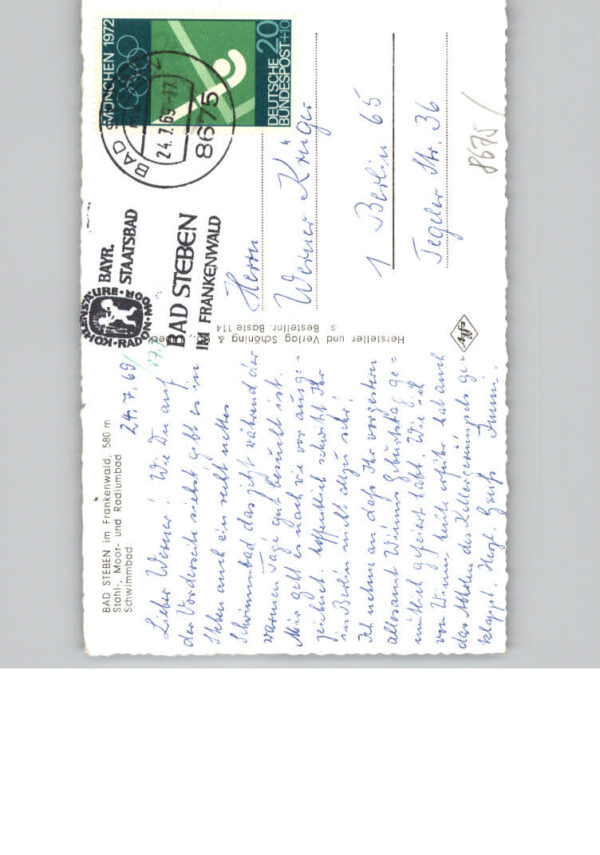 BAD STEBEN im Frankenwald, 580 m
Stahl-, Moor- und Radiumbad
Schwimmbad
24.7.69
Lieber Werner! Wie Du auf
der Vorderseite siehst gibt es in
Steben auch ein recht nettes
Schwimmbad das jetzt während der
warmen Tage gut besucht ist.
Mir geht es nach wie vor ausge-
zeichnet. Hoffentlich schwitzt Ihr
in Berlin nicht allzu sehr!
Ich nehme an daß Ihr vorgestern
allesamt Winnis Geburtstag ge-
mütlich gefeiert habt. Wie ich
von Winni heute erfuhr hat auch
das Abholen des Kellergerümpels ge-
klappt. Herzl. Gruß
Hersteller und Verlag Schöning &
s Bestellnr. Basle 114
Agfa
BAYR.
STAATSBAD
KOHLENSÄURE · RADON · MOOR
BAD STEBEN
IM FRANKENWALD
BAD
24.7.69-17
8675
MÜNCHEN 1972
20
+10
DEUTSCHE
BUNDESPOST
Herrn
Werner Krüger
1 Berlin 65
Tegeler Str. 36
8675/